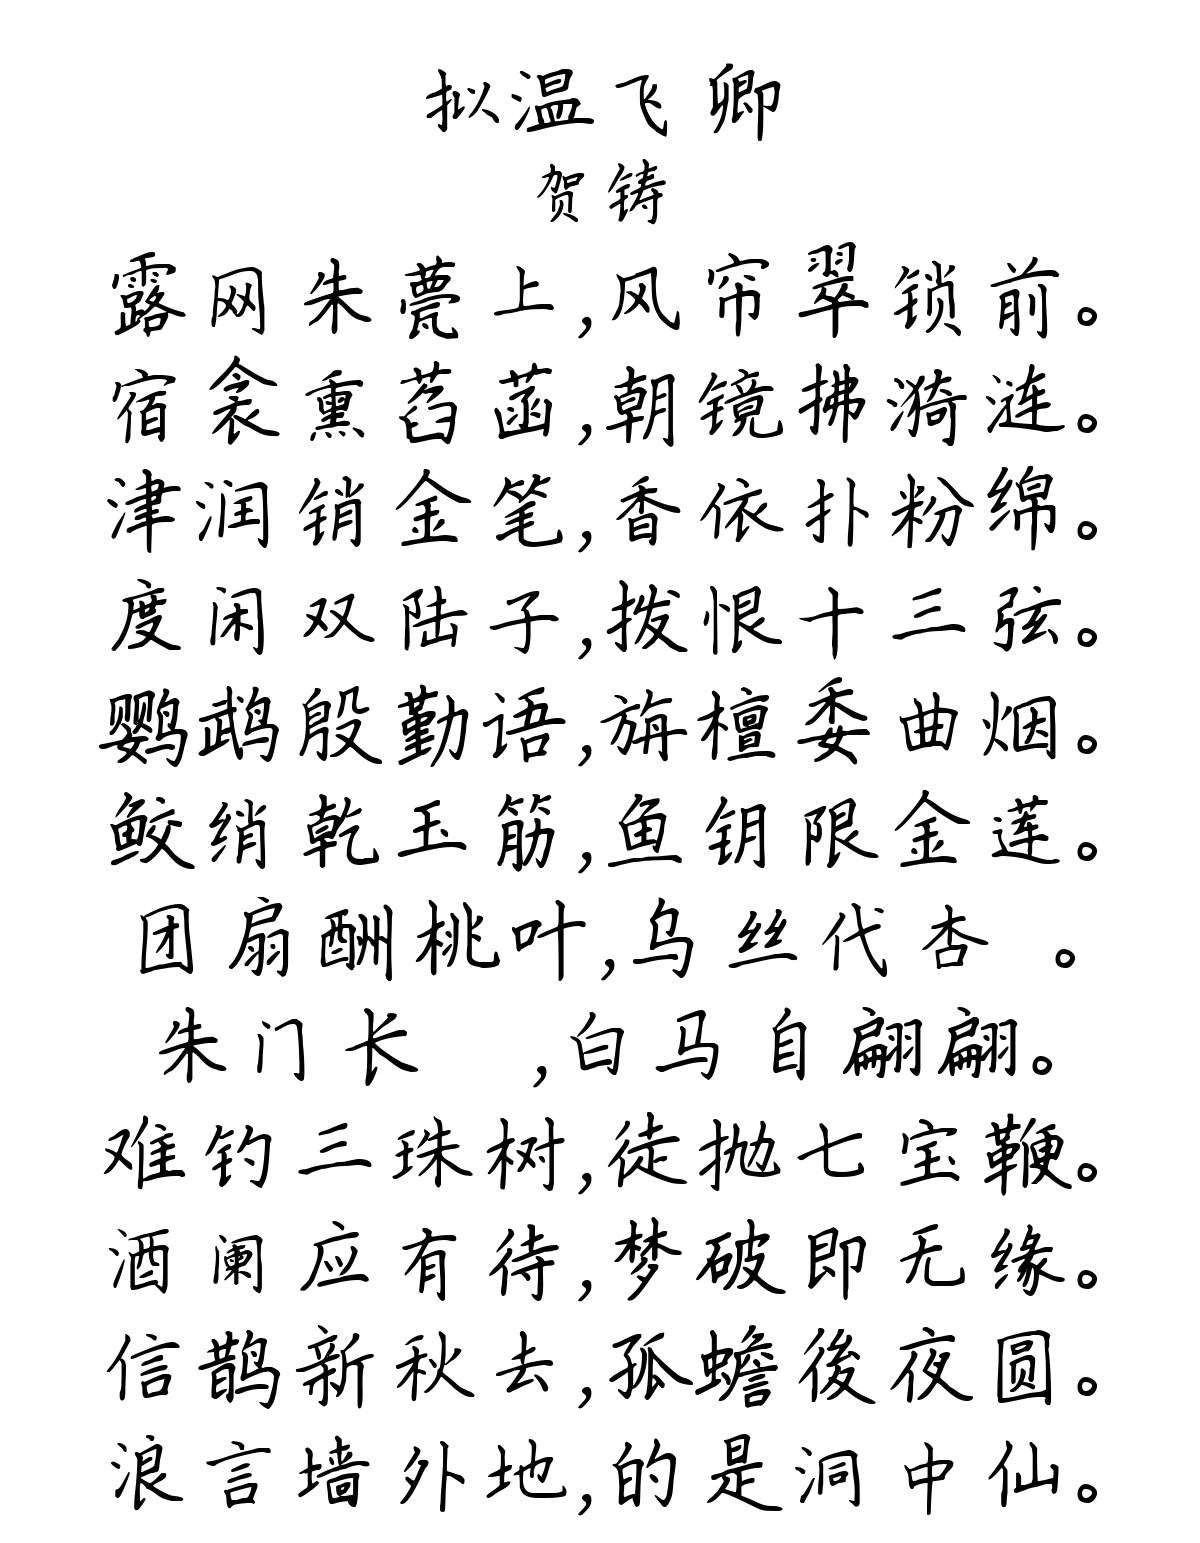 拟温飞卿
贺铸
露网朱甍上,风帘翠锁前。
宿衾熏茖菡,朝镜拂漪涟。
津润销金笔,香依扑粉绵。
度闲双陆子,拨恨十三弦。
鹦鹉殷勤语,旃檀委曲烟。
鲛绡乾玉筋,鱼钥限金莲。
团扇酬桃叶,乌丝代杏 。
朱门长 ,白马自翩翩。
难钓三珠树,徒抛七宝鞭。
酒阑应有待,梦破即无缘。
信鹊新秋去,孤蟾後夜圆。
浪言墙外地,的是洞中仙。